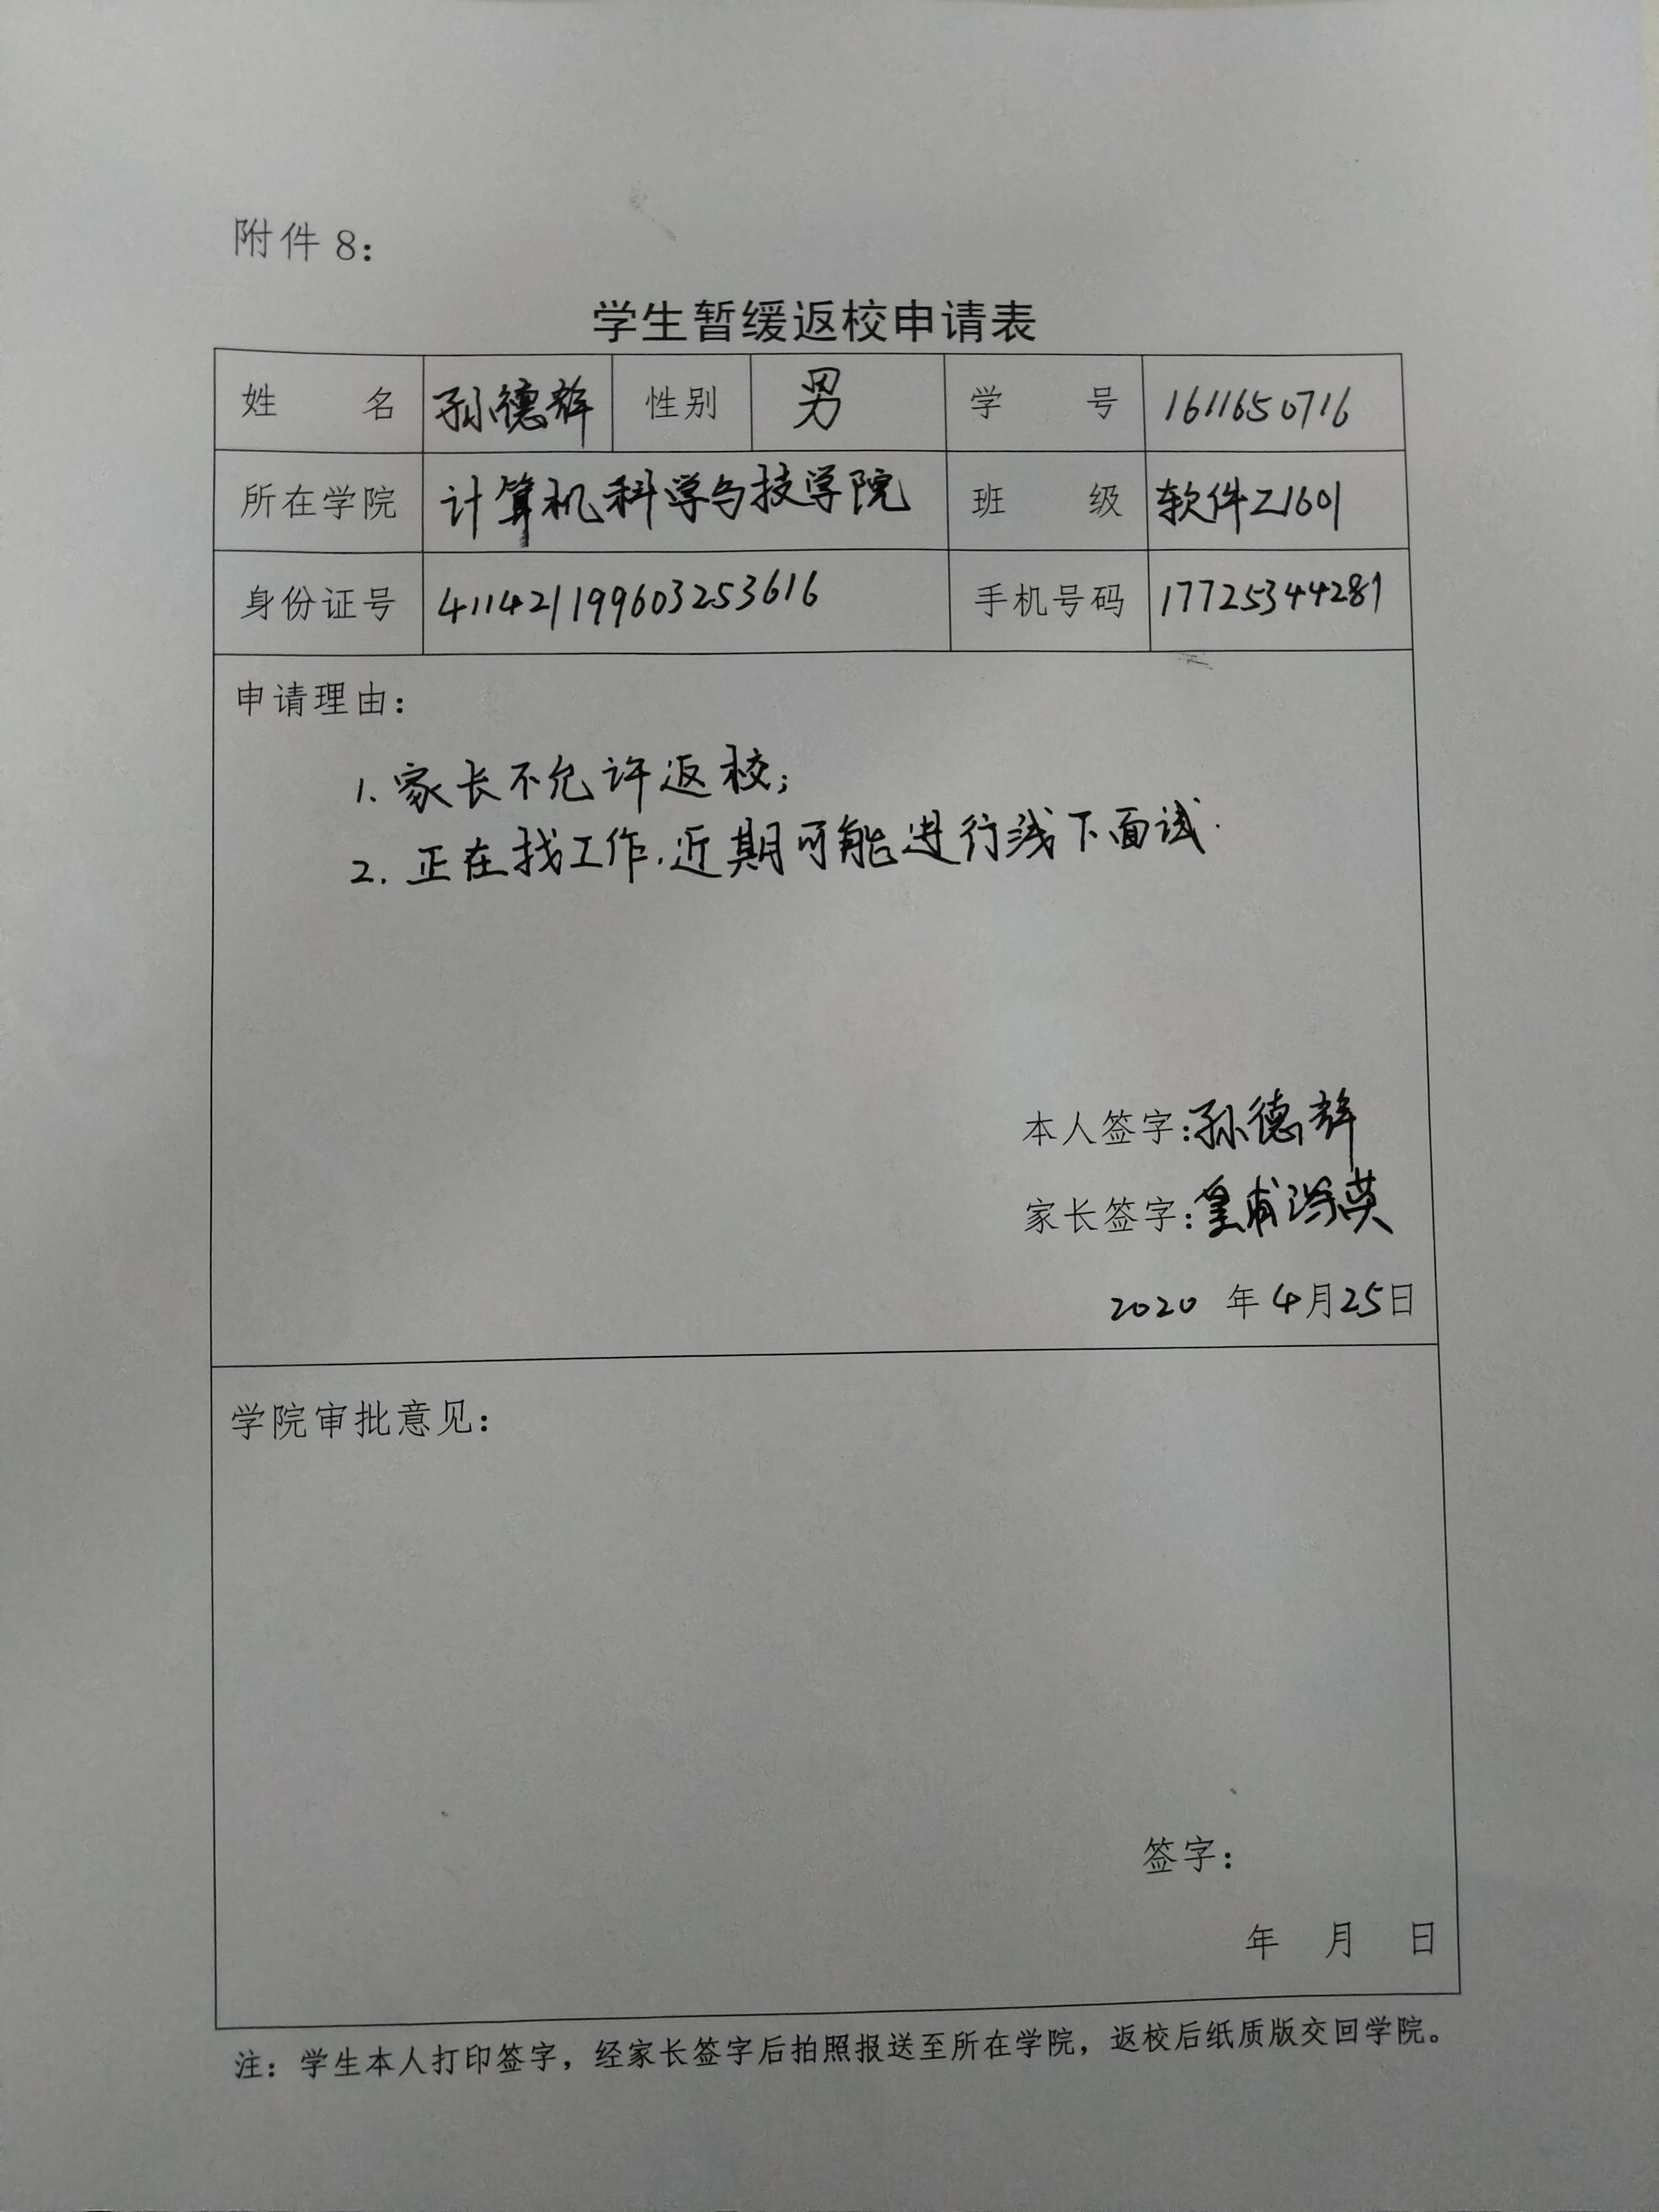 附件 8：
学生暂缓返校申请表
姓 名 孙德辉 性别 男 学 号 1611650716
所在学院 计算机科学与技学院 班 级 软件Z1601
身份证号 411421199603253616 手机号码 17725344281
申请理由：
1. 家长不允许返校；
2. 正在找工作.近期可能进行线下面试.
本人签字：孙德辉
家长签字：皇甫 英
2020 年 4 月 25 日
学院审批意见：
签字：
年 月 日
注：学生本人打印签字，经家长签字后拍照报送至所在学院，返校后纸质版交回学院。